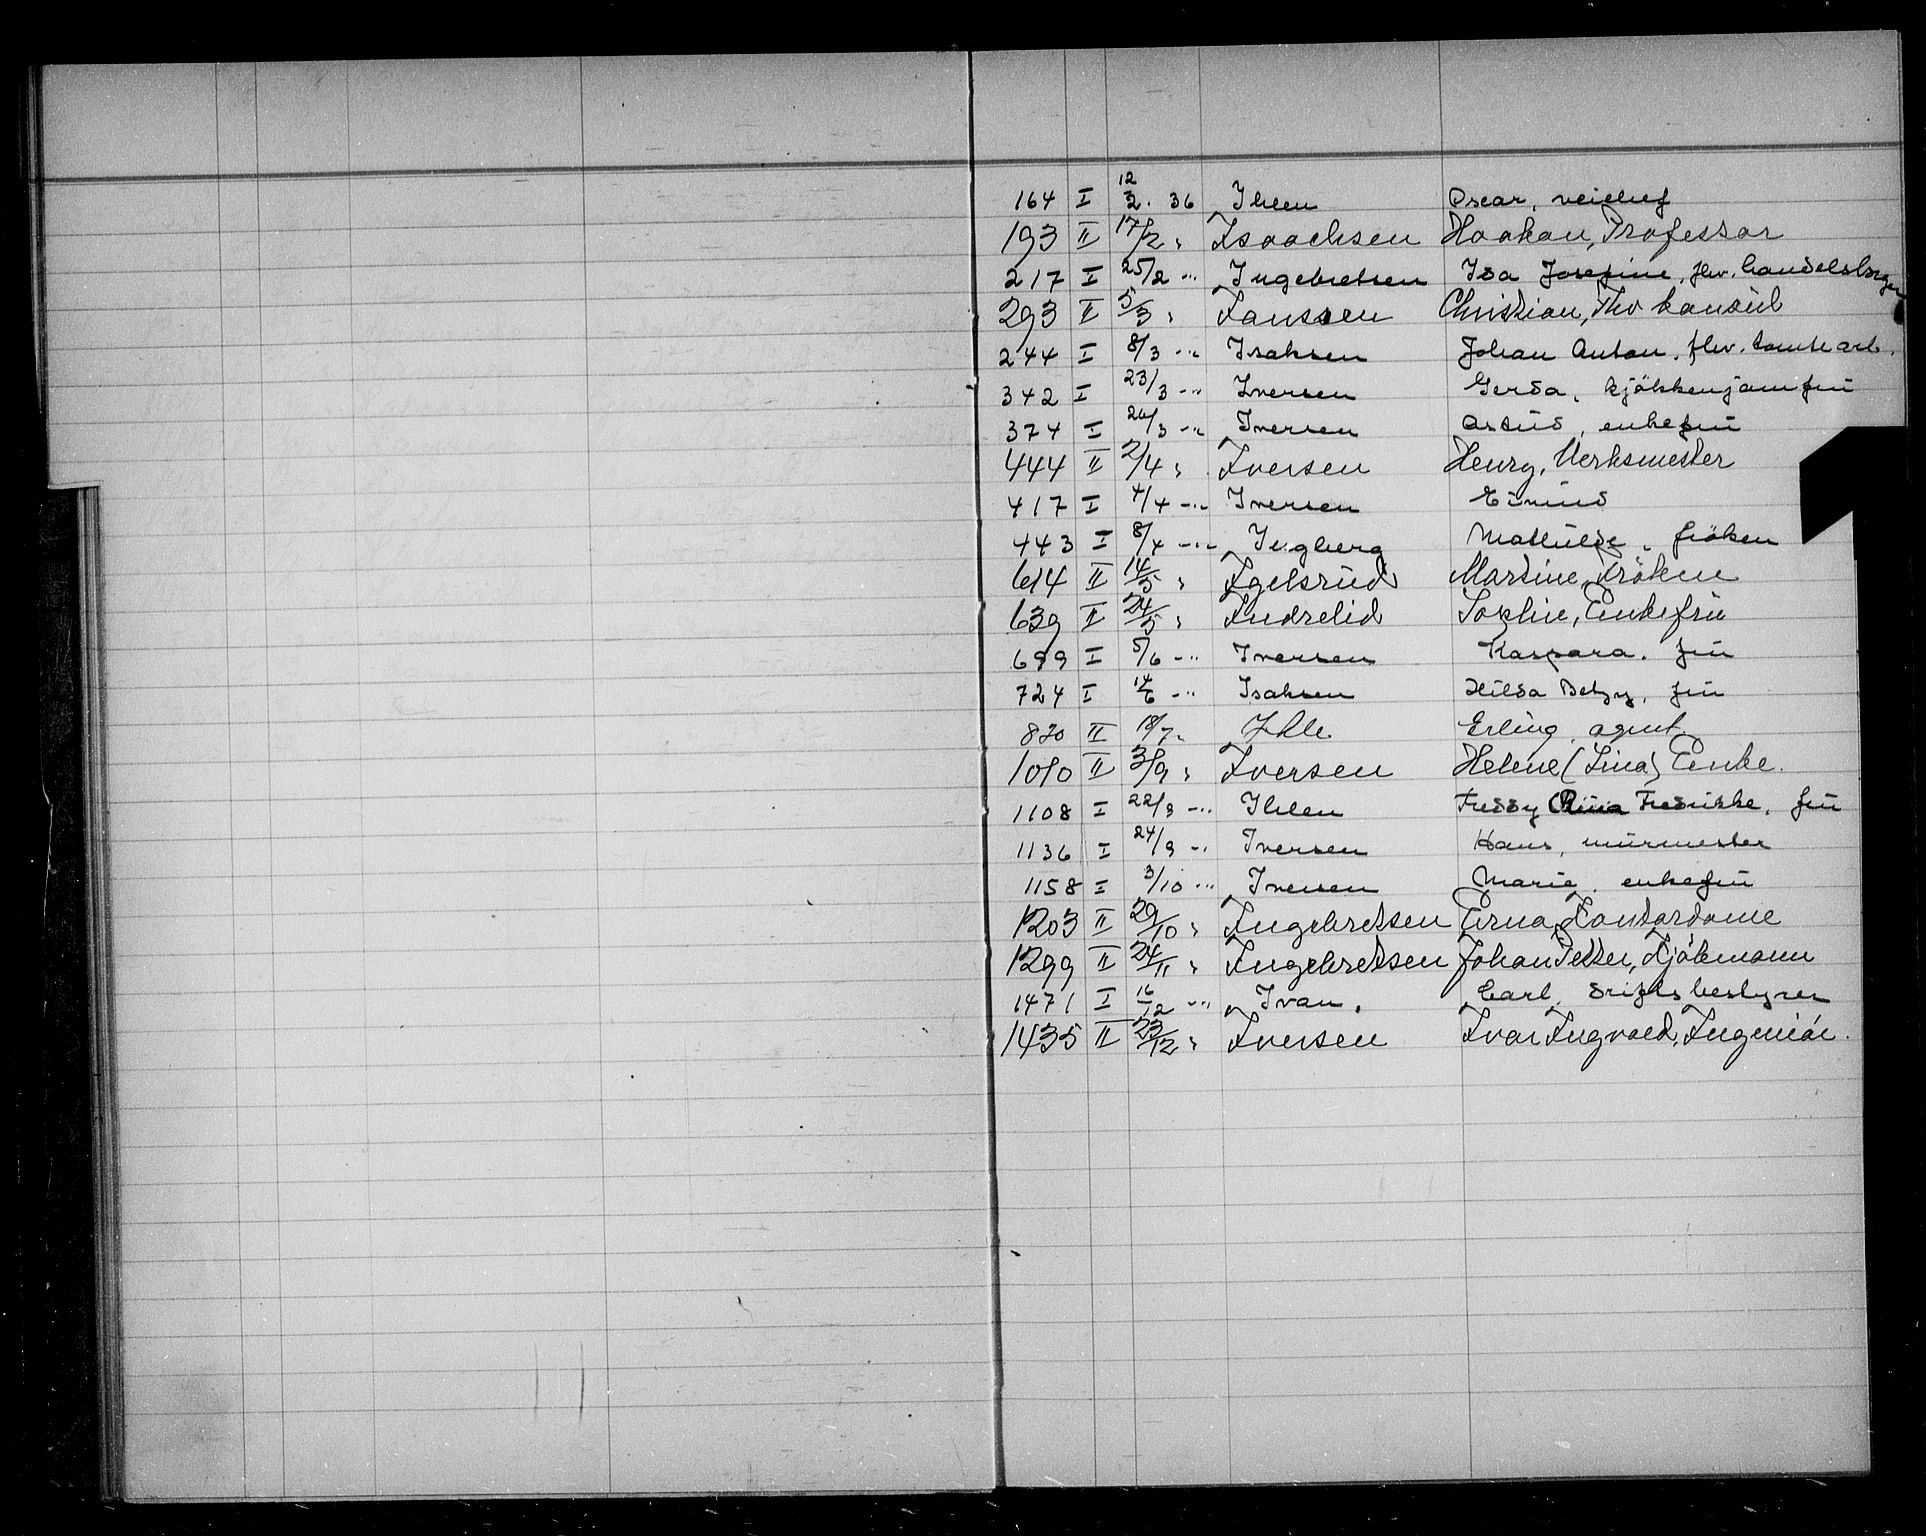 164 I 12/2. 36 Ihlen Oscar, veichef
193 II 17/2 " Isaachsen Haakon, Professor
217 I 25/2 -"- Ingebretsen Ida Josefine, fhv. handelsborger
293 II 5/3 " Janssen Christian, Fhv konsul
244 I 8/3 -"- Isaksen Johan Anton, fhv. tomtearb.
342 I 23/3 -"- Iversen Gerda, kjökkenjomfru
374 I 26/3 -"- Iversen Astrid, enkefru
444 II 2/4 " Iversen Henry, Verksmester
417 I 4/4 -"- Iversen
443 I 8/4 -"- Ingberg Mathilde, fröken
614 II 14/5 " Igelsrud Martine, Fröken
639 II 24/5 " Indrelid Sophie, Enkefru
699 I 5/6 -"- Iversen Kaspara, fru
724 I 14/6 -"- Isaksen Hilda Betzy, fru
820 II 18/7 " Ihle Erling, agent
1010 II 3/9 " Iversen Helene (Lina) Enke.
1108 I 22/9 -"- Ihlen Freddy Fredrikke, fru
1136 I 24/9 -"- Iversen Hans, murmester
1158 I 3/10 -"- Iversen Marie, enkefru
1203 II 29/10 " Ingebretsen Erna, Kontordame
1299 II 24/11 " Ingebretsen Johan Petter, Sjökmann
1471 I 16/12 -"- Ivan, Carl, driftsbestyrer
1435 II 23/12 " Iversen Ivar Ingvald, Ingeniör.